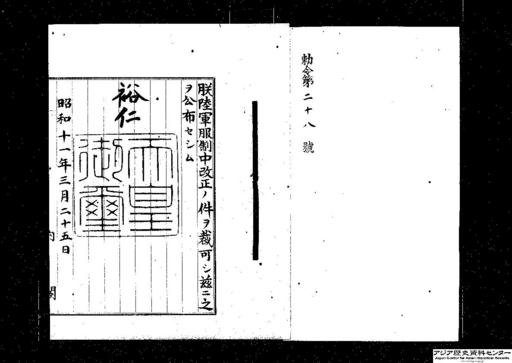 勅令第二十八號
朕陸軍服制中改正ノ件ヲ裁可シ茲ニ之
ヲ公布セシム
裕仁
天皇御璽
昭和十一年三月二十五日
内閣
アジア歴史資料センター
Japan Center for Asian Historical Records